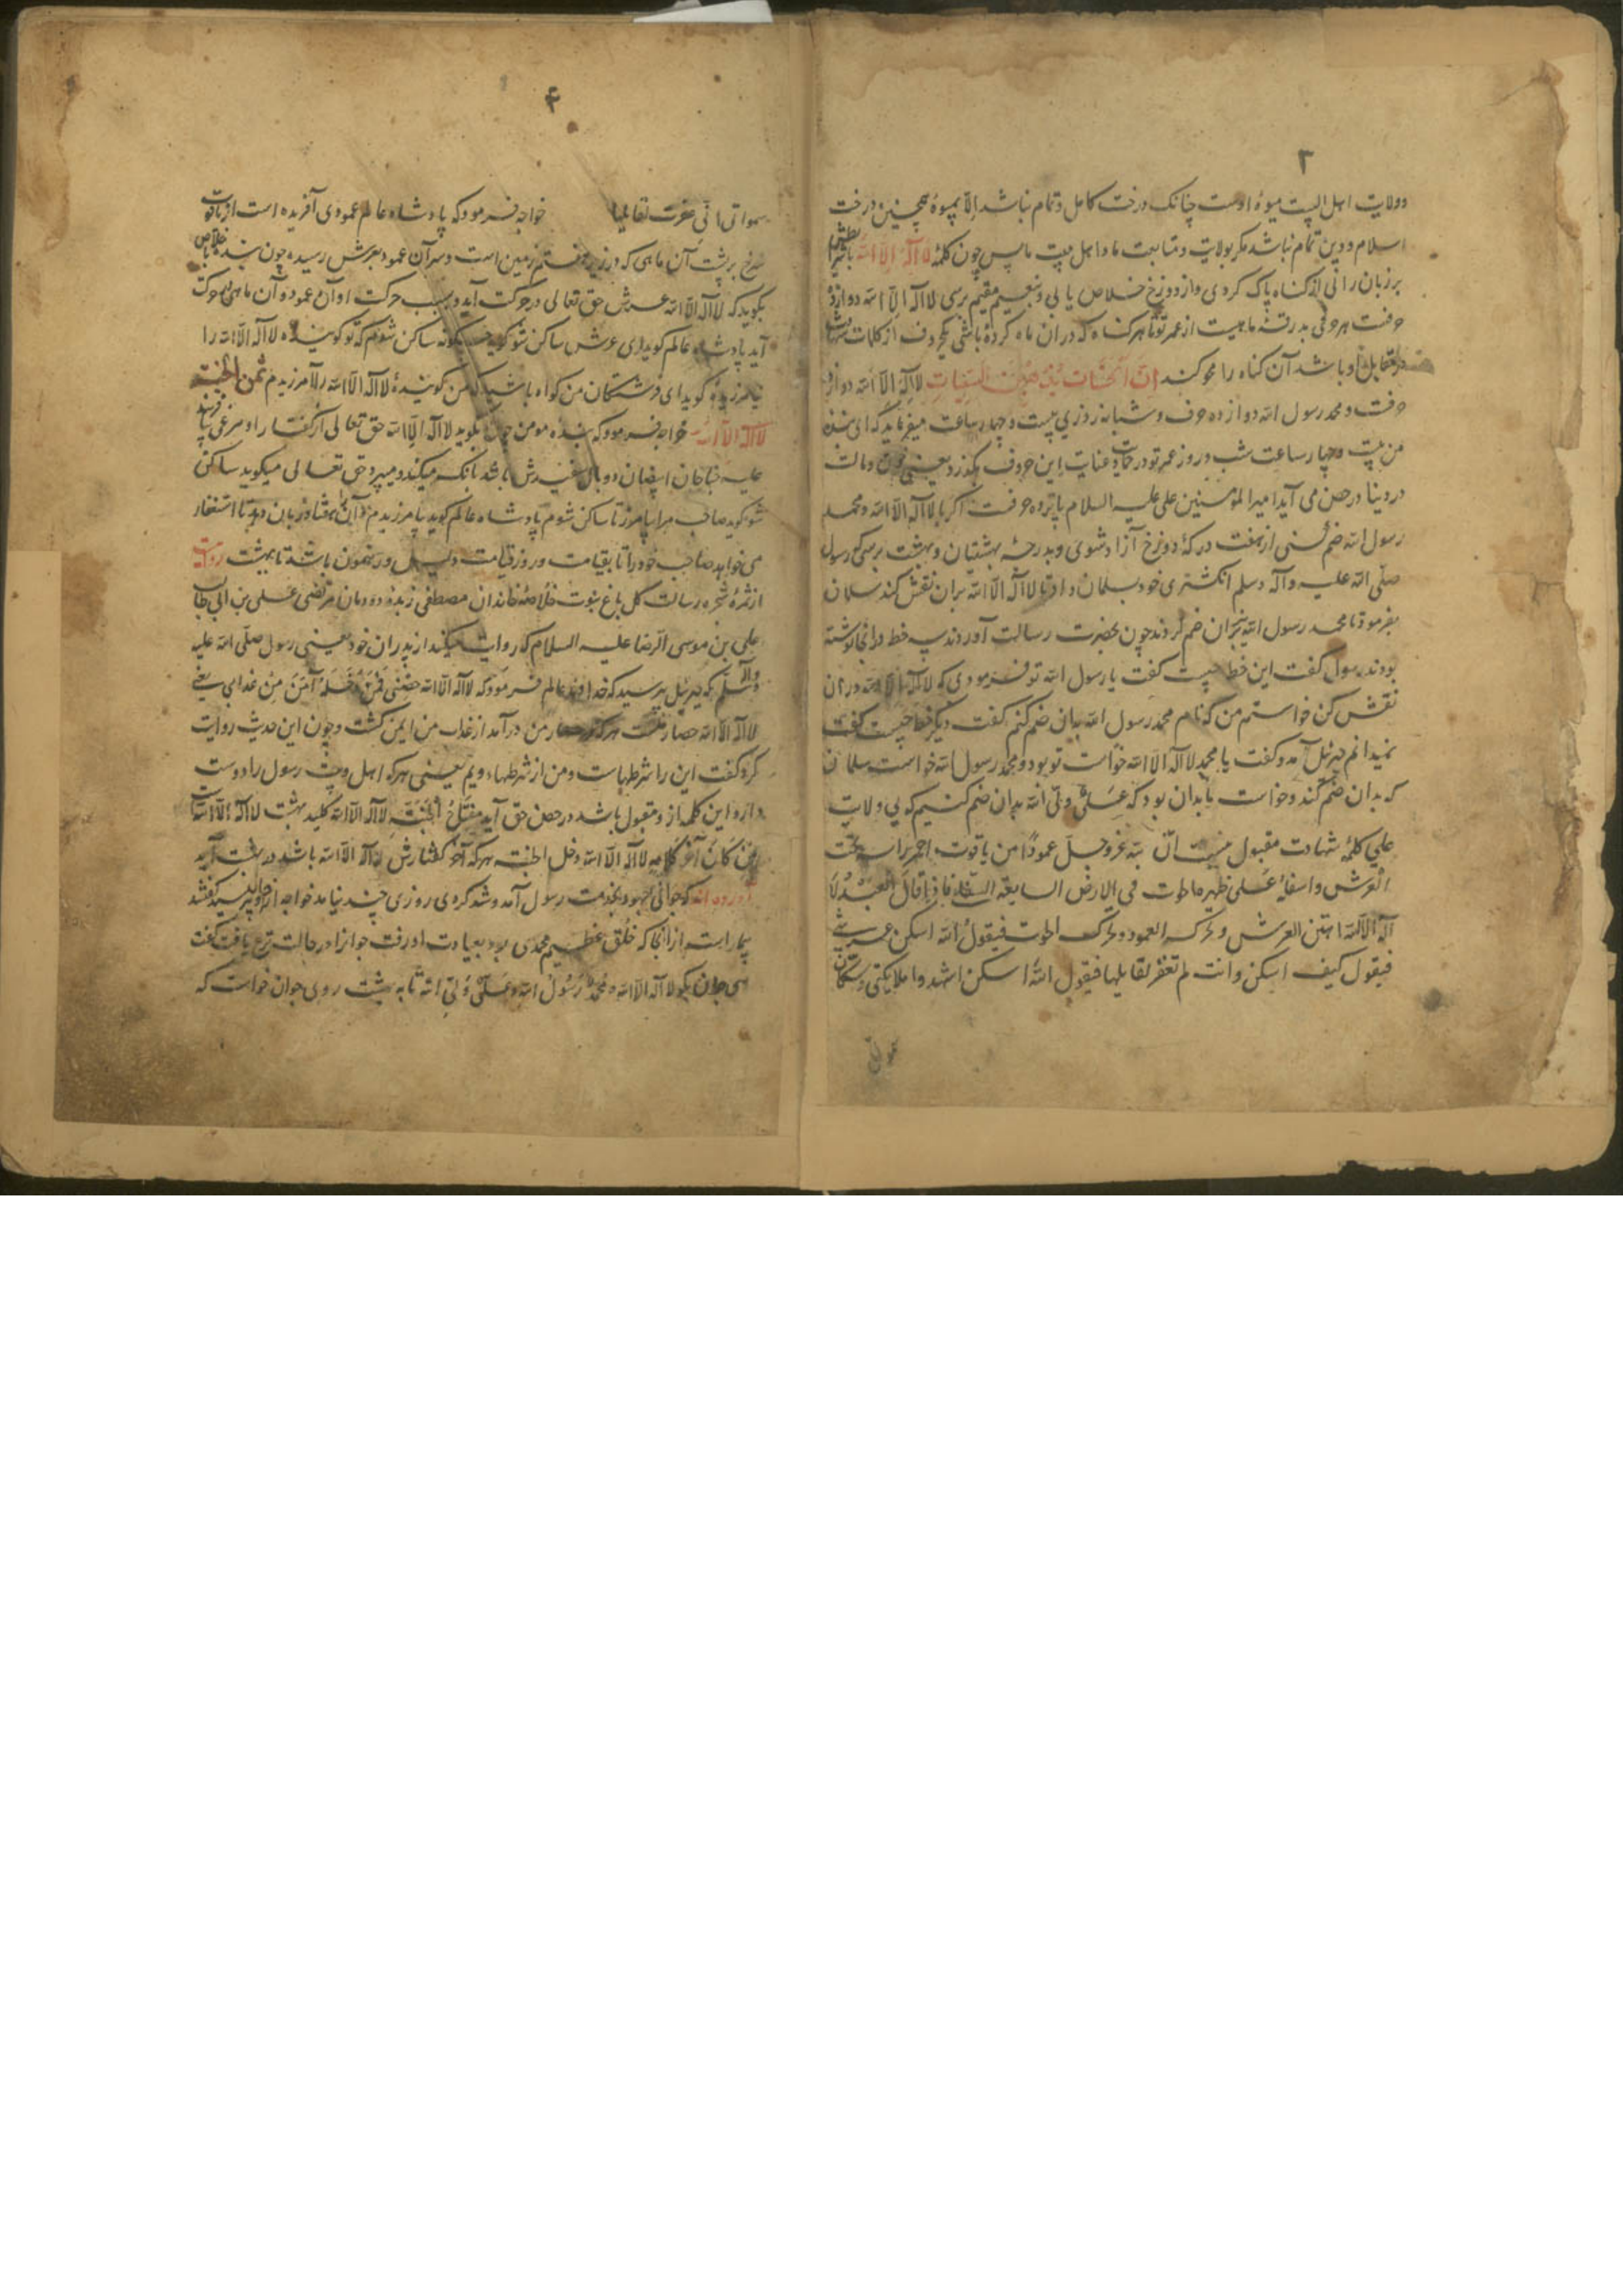 ۳
و ولایت اهل البیت میوهٔ اوست چنانک درخت کامل و تمام نباشد الّا بمیوه همچنین درخت
اسلام و دین تمام نباشد مکر بولایت و متابعت ما و اهل بیت ما پس چون کلمهٔ لا اله الا الله باشرایطش
بر زبان رانی از کناه پاک کردی و از دوزخ خلاص یابی و بنعیم مقیم برسی لا اله الا الله دوازده
حرفت هر حرفی بدرقهٔ ماهیست از عمر تو تا هر کناه که در ان ماه کردهٔ باشی یکحروف از کلمات شهادت
در مقابل او باشد آن کناه را محو کند اِنَّ الْحَسَناتِ یُذْهِبْنَ السَّیِّئاتِ لا اله الا الله دوازده
حرفت و محمد رسول الله دوازده حرف و شبانه روزی بیست و چهار ساعت میفرماید که ای بندهٔ
من بیست و چهار ساعت شب و روز عمر تو در حمایت و عنایت این حروف بکذرد یعنی خون و مالت
در دنیا در حصن می آید امیر المؤمنین علی علیه السلام یازده حرفت اکر با لا اله الا الله و محمد
رسول الله ضم کنی از هفت درکهٔ دوزخ آزاد شوی و بدرجهٔ بهشتیان و بهشت برسی که رسول
صلّی الله علیه و آله و سلم انکشتری خود بسلمان داد تا لا اله الا الله بران نقش کند سلمان
بفرمود تا محمد رسول الله نیز بران ضم کردند چون بحضرت رسالت آوردند سه خط در انجا نوشته
بودند رسول گفت این خط چیست گفت یا رسول الله تو فرمودی که لا اله الا الله در ان
نقش کن خواستم من که نام محمد رسول الله بدان ضم کنم گفت دیکر خط چیست گفت
نمیدانم جبرئیل آمد و گفت یا محمد لا اله الا الله خواست تو بود و محمد رسول الله خواست سلمان
که بدان ضم کند و خواست ما بدان بود که عَلیٌّ ولیّ الله بدان ضم کنیم که بی ولایت
علی کلمهٔ شهادت مقبول نیست انّ لله عزّ و جلّ عموداً من یاقوت احمر راسه تحت
العرش و اسفله عَلی ظهر الحوت فی الارض السابعة السفلی فاذا قال العبد لا
اله الا الله اهتزّ العرش و تحرّک العمود و تحرّک الحوت فیقول الله اسکن عرشی
فیقول کیف اسکن و انت لم تغفر لقایلها فیقول الله اسکن اشهدوا ملایکتی و سکّان
۴
سمواتی انّی غفرت لقایلها خواجه فرمود که پادشاه عالم عمودی آفریده است از یاقوت
سرخ بر پشت آن ماهی که در زیر هفتم زمین است و سر آن عمود بعرش رسیده چون بنده باخلاص
بکوید که لا اله الا الله عرش حق تعالی در حرکت آید و بسبب حرکت او آن عمود و آن ماهی در حرکت
آید پادشاه عالم کوید ای عرش ساکن شو کوید چکونه ساکن شوم که تو کویندهٔ لا اله الا الله را
نیامرزیدهٔ کوید ای فرشتکان من کواه باشید که من کویندهٔ لا اله الا الله را آمرزیدم ثمن الجنّة
لا اله الا الله خواجه فرمود که بندهٔ مومن چون بکوید لا اله الا الله حق تعالی از کفتار او مرغی بیافریند
علیه جناحان ابیضان دو بال سفیدش باشد بانک میکند و میپرد حق تعالی میکوید ساکن
شو کوید صاحب مرا بیامرز تا ساکن شوم پادشاه عالم کوید بیامرزیدم و آن مرغ را هفتاد زبان دهد تا استغفار
می خواهد صاحب خود را تا بقیامت و روز قیامت دلیل و رهنمون باشد تا بهشت روایت
از ثمرهٔ شجرهٔ رسالت کل باغ نبوت خلاصهٔ خاندان مصطفی زبدهٔ دودمان مرتضی عَلی بن ابی طالب
علی بن موسی الرّضا علیه السلام که روایت میکند از پدران خود یعنی رسول صلّی الله علیه
و آله و سلّم که جبرئیل پرسید که خداوند عالم فرمود که لا اله الا الله حِصْنی فَمَنْ دَخَلَهُ اَمِنَ مِنْ عَذابی یعنی
لا اله الا الله حصار منست هر که در حصار من در آمد از عذاب من ایمن کشت و چون این حدیث روایت
کرد گفت این را شرطهاست و من از شرطهاء ویم یعنی هر که اهل بیت رسول را دوست
دارد این کلمه از و مقبول باشد در حصن حق آید مفتاح الجنّة لا اله الا الله کلید بهشت لا اله الا الله است
مَنْ کانَ آخر کلامه لا اله الا الله دخل الجنّة هر که آخر کفتارش لا اله الا الله باشد در بهشت آید
آورده اند که جوانی جهود بخدمت رسول آمد و شد کردی روزی چند نیامد خواجه از حال او پرسید گفتند
بیمار است از انجا که خُلق عظیم محمدی بود بعیادت او رفت جوان را در حالت نزع یافت گفت
ای جوان بکو لا اله الا الله محمّدٌ رَسُولُ الله و عَلیٌّ وَلیّ الله تا به بهشت روی جوان خواست که